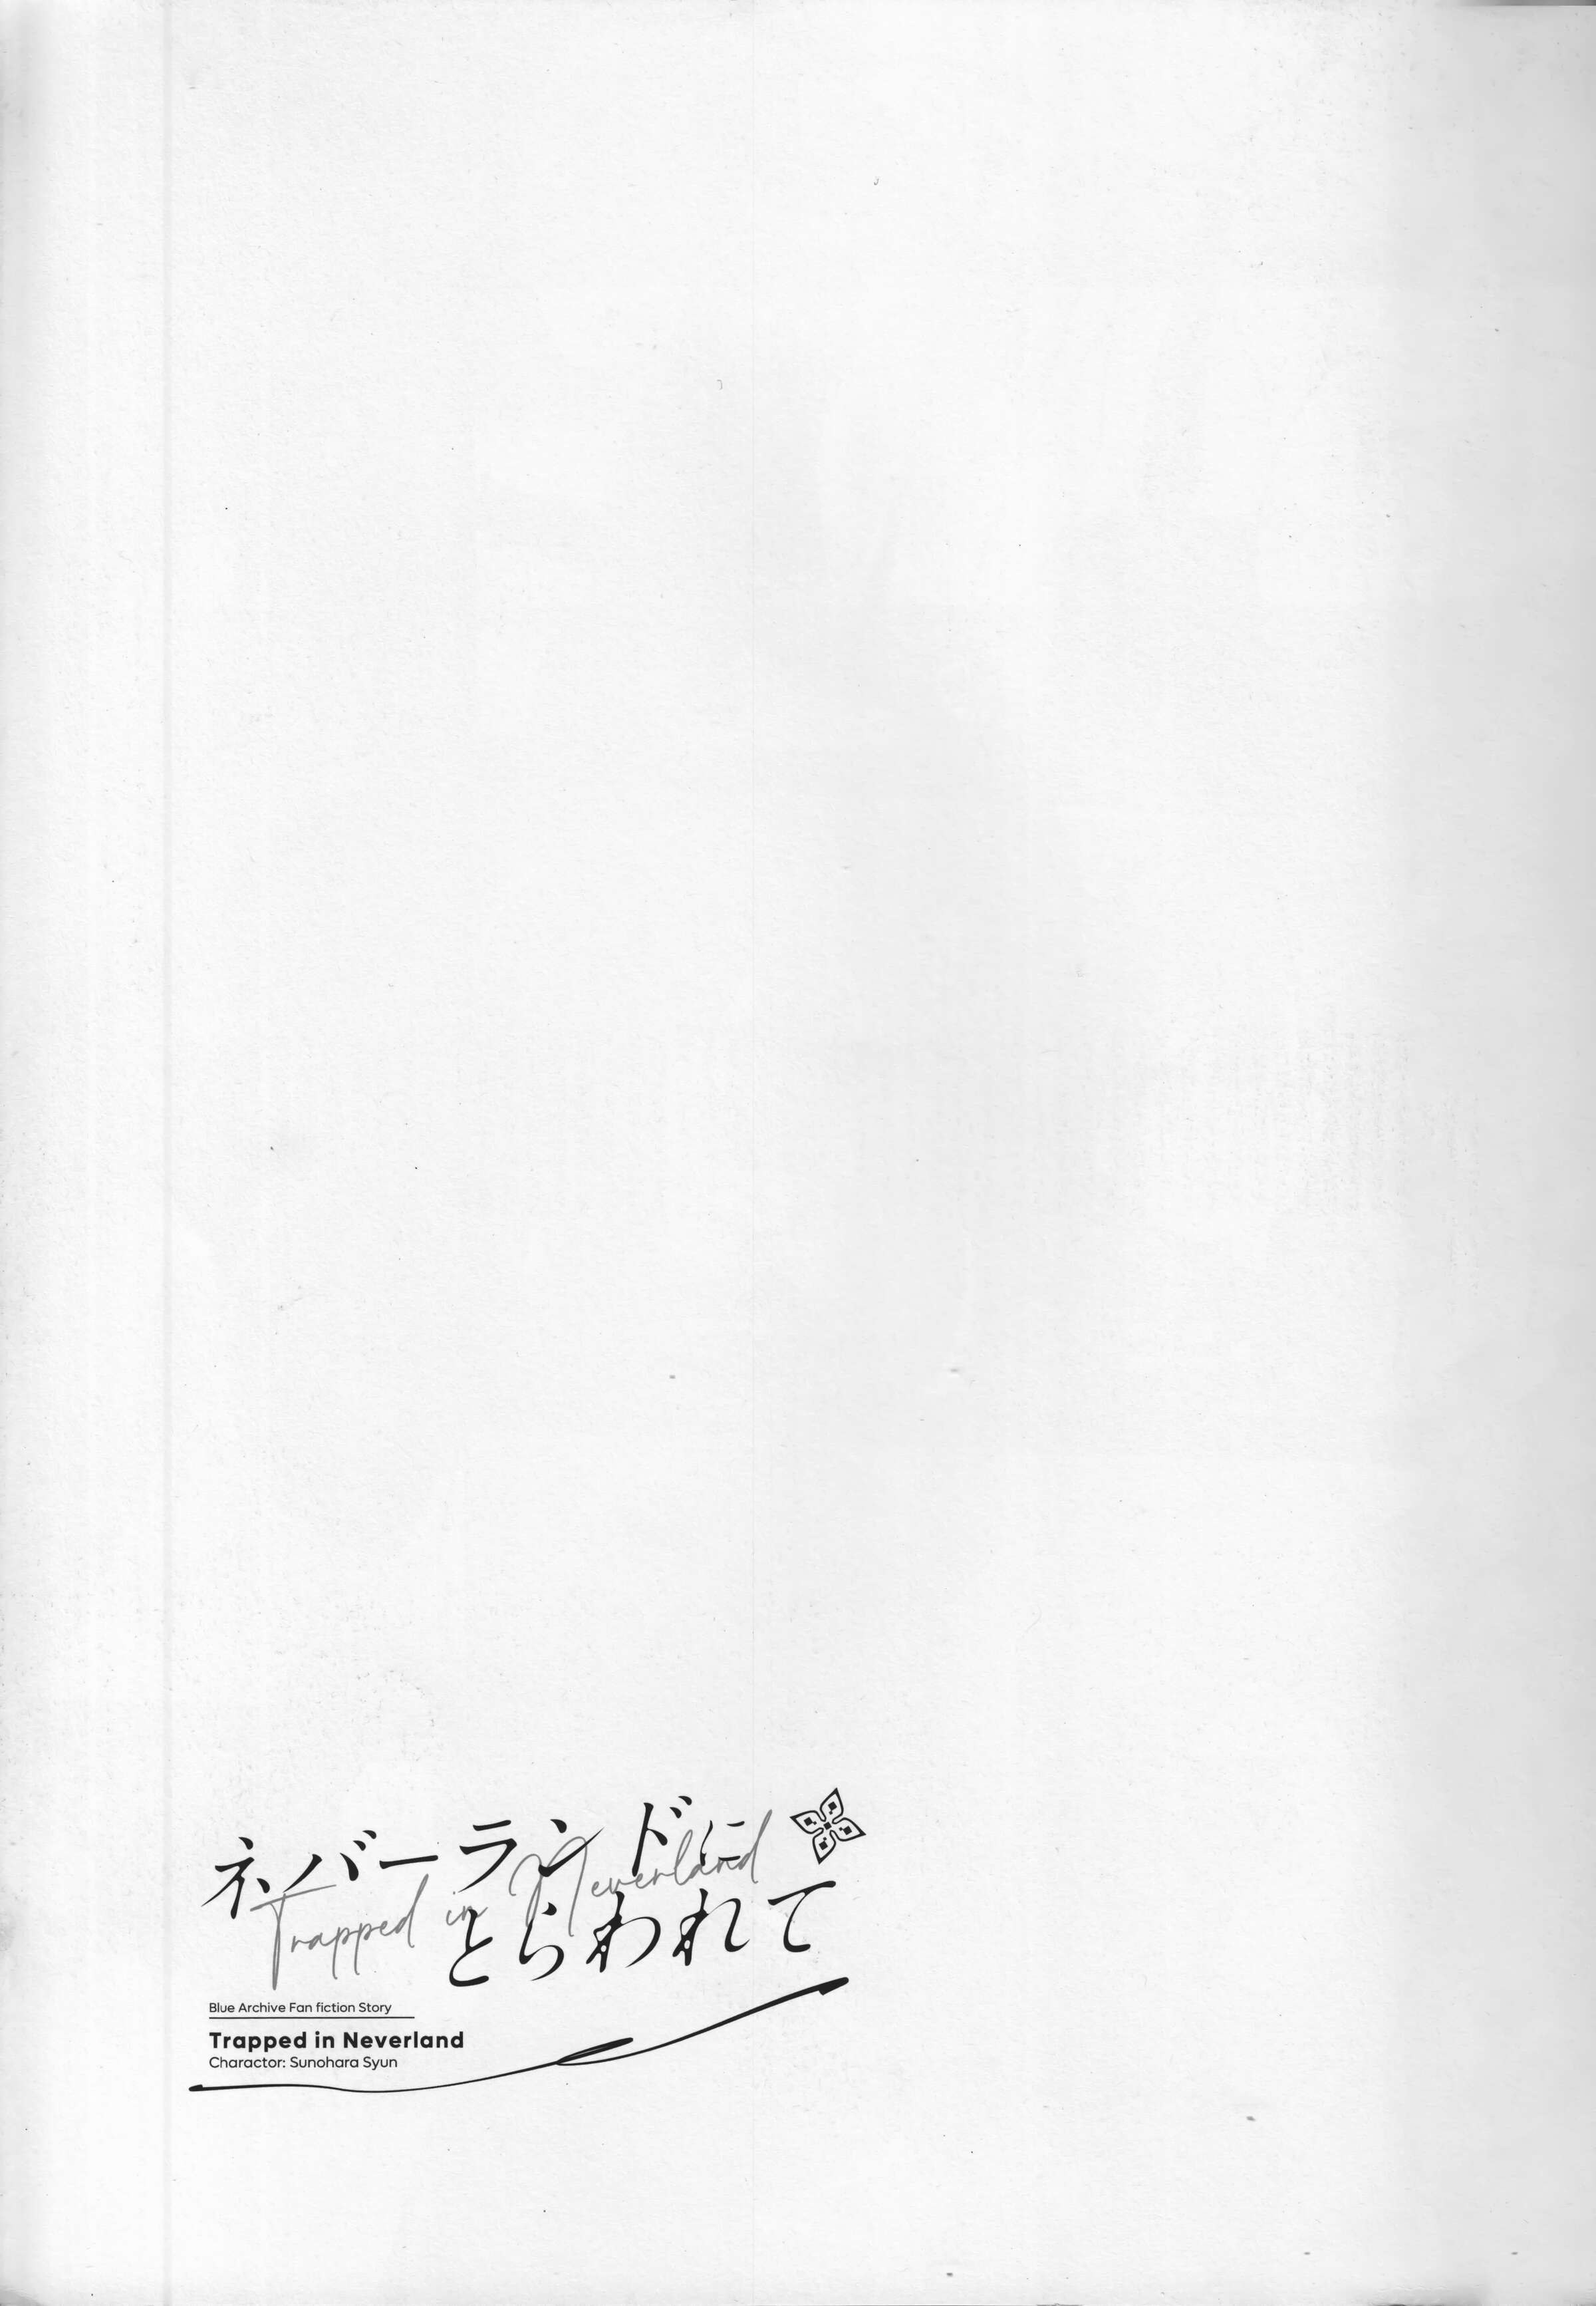 ネバーランドに
Trapped in Neverland
とらわれて
Blue Archive Fan fiction Story
Trapped in Neverland
Charactor: Sunohara Syun